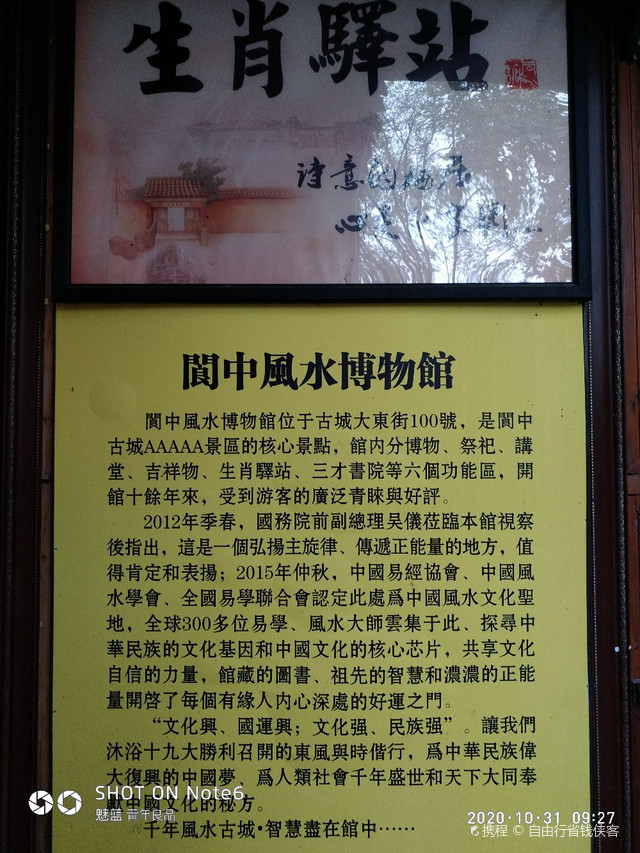 生肖驛站
诗意的栖居
閬中風水博物館
閬中風水博物館位于古城大東街100號，是閬中
古城AAAAA景區的核心景點，館内分博物、祭祀、講
堂、吉祥物、生肖驛站、三才書院等六個功能區，開
館十餘年來，受到游客的廣泛青睞與好評。
2012年季春，國務院前副總理吴儀莅臨本館視察
後指出，這是一個弘揚主旋律、傳遞正能量的地方，值
得肯定和表揚；2015年仲秋，中國易經協會、中國風
水學會、全國易學聯合會認定此處爲中國風水文化聖
地，全球300多位易學、風水大師雲集于此、探尋中
華民族的文化基因和中國文化的核心芯片，共享文化
自信的力量，館藏的圖書、祖先的智慧和濃濃的正能
量開啓了每個有緣人内心深處的好運之門。
“文化興、國運興；文化强、民族强”。讓我們
沐浴十九大勝利召開的東風與時偕行，爲中華民族偉
大復興的中國夢、爲人類社會千年盛世和天下大同奉
獻中國文化的秘方。
千年風水古城·智慧盡在館中……
SHOT ON Note6
魅蓝 青年良品
2020·10·31 09:27
携程 © 自由行省钱侠客